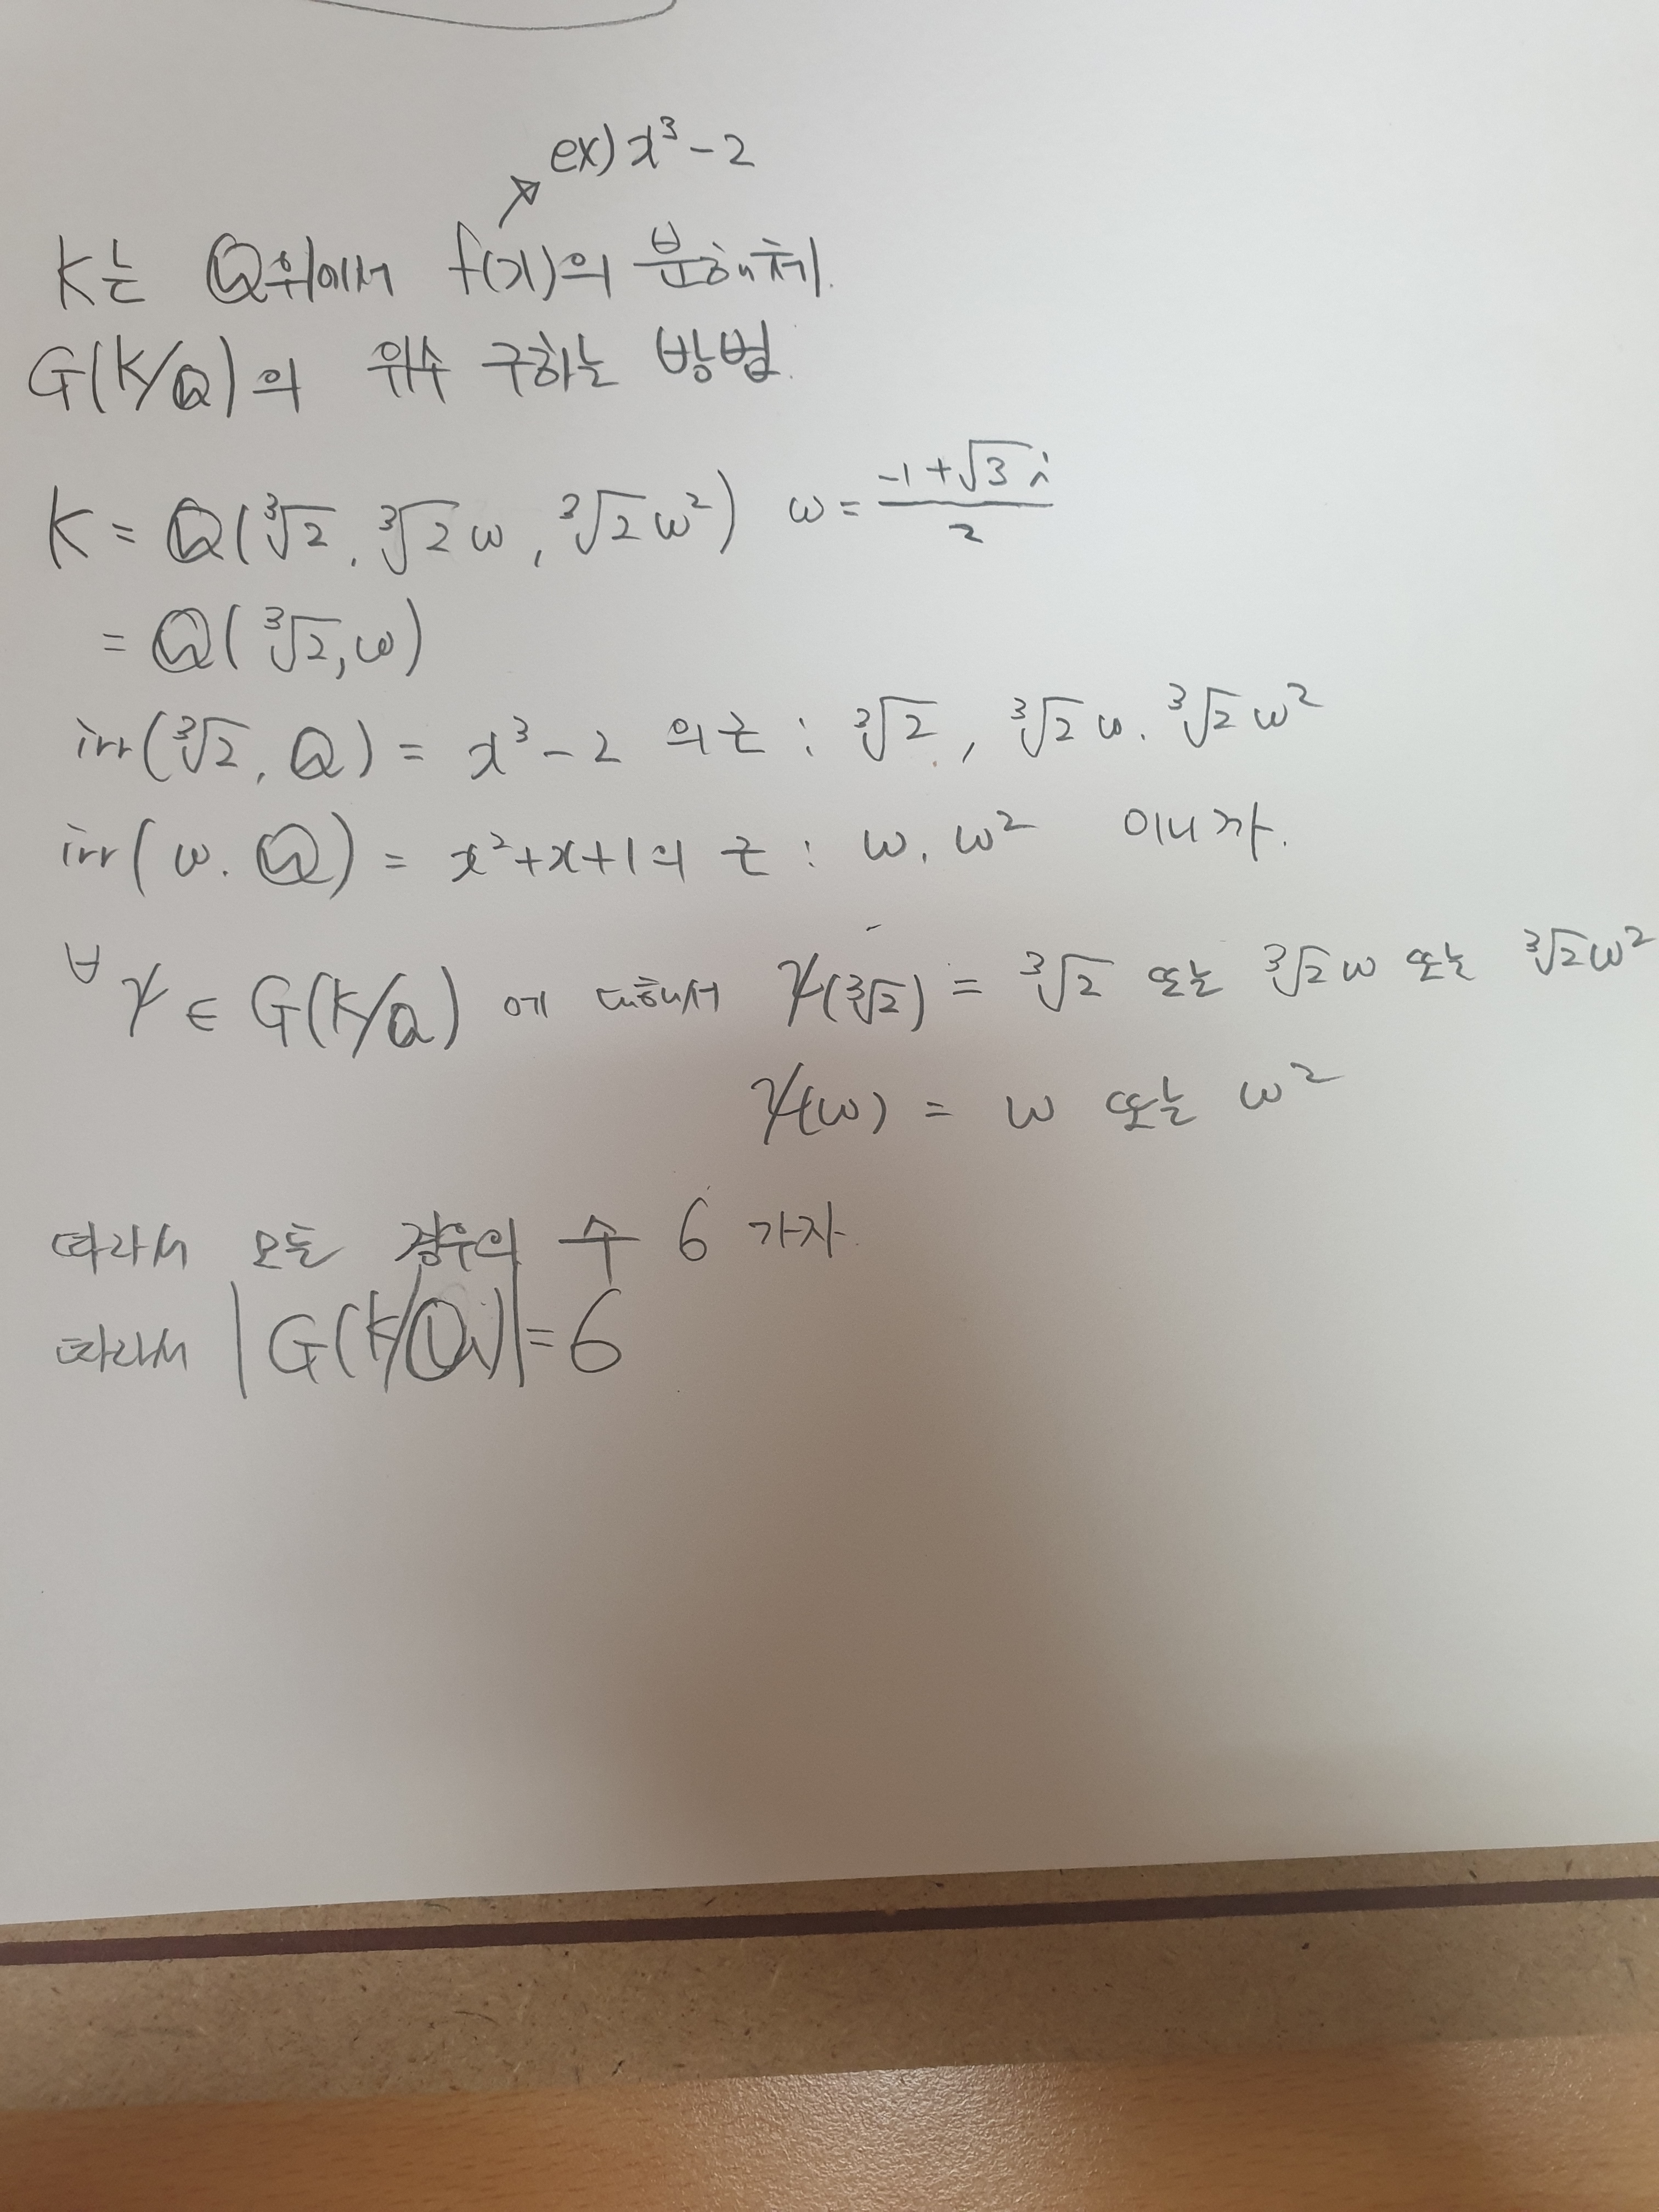 ex) x³-2
K는 Q위에서 f(x)의 분해체.
G(K/Q)의 위수 구하는 방법.
K = Q(³√2, ³√2ω, ³√2ω²) ω = (-1+√3i)/2
= Q(³√2, ω)
irr(³√2, Q) = x³-2 의 근 : ³√2, ³√2ω, ³√2ω²
irr(ω, Q) = x²+x+1의 근 : ω, ω² 이니까.
∀ψ ∈ G(K/Q) 에 대해서 ψ(³√2) = ³√2 또는 ³√2ω 또는 ³√2ω²
ψ(ω) = ω 또는 ω²
따라서 모든 경우의 수 6 가지.
따라서 |G(K/Q)|=6